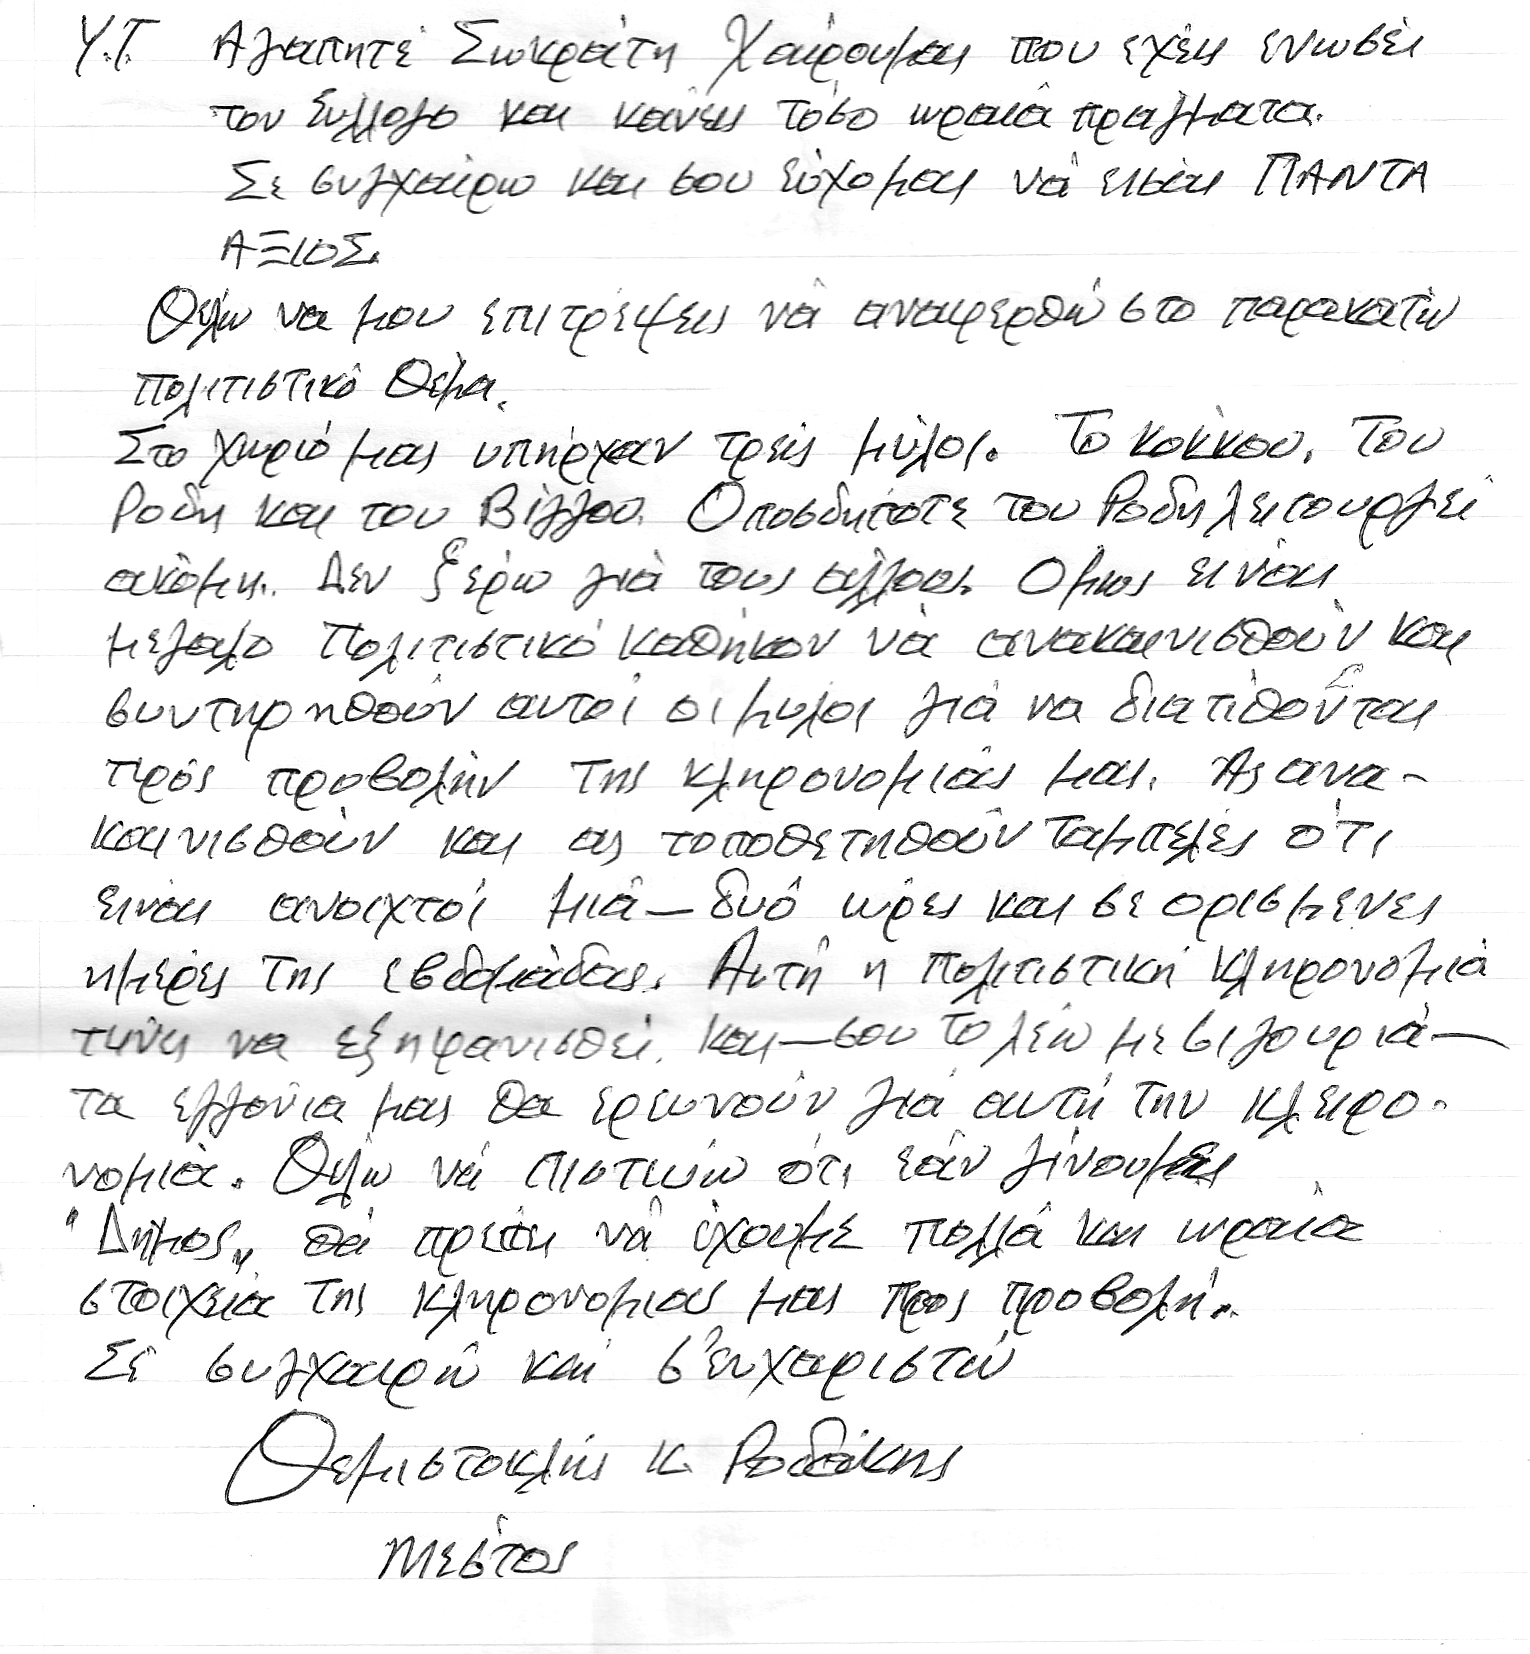 Υ.Γ. Αγαπητέ Σωκράτη Χαίρομαι που εχεις ενωσει
τον Συλλογο και κανεις τόσο ωραια πραγματα.
Σε συγχαίρω και σου εύχομαι νά εισαι ΠΑΝΤΑ
ΑΞΙΟΣ.
Θελω να μου επιτρέψεις νά αναφερθώ στο παρακατω
πολιτιστικό θέμα.
Στο χωριό μας υπήρχαν τρείς μύλοι. Το κοκκου, Του
Ροδη και του Βίγγου. Οποσδητοτε του Ροδη λειτουργεί
ακόμη. Δεν ξερω γιά τους αλλους. Ομως ειναι
μεγαλο Πολιτιστικό καθήκον νά ανακαινισθούν και
συντηρηθούν αυτοί οι μυλοι γιά να διατίθονται
πρός προβολήν της κληρονομιάς μας. Ας ανα-
καινισθούν και ας τοποθετηθούν ταμπελες ότι
ειναι ανοιχτοί μιά – δυό ωρες και σε ορισμενες
ημέρες της εβδομάδας. Αυτή η πολιτιστική κληρονομιά
τινει να εξηφανισθεί. και – σου το λέω με σιγουριά –
τα εγγόνια μας θα ερευνούν γιά αυτή την κλειρο-
νομιά. Θελω νά πιστεύω ότι εάν γίνουμε
"Δήμος" θά πρεπει νά έχουμε πολλά και ωραία
στοιχεία της κληρονομιας μας προς προβολή.
Σέ συγχαιρώ και σ'ευχαριστώ
Θεμιστοκλής Κ. Ροδάκης
Μεστος